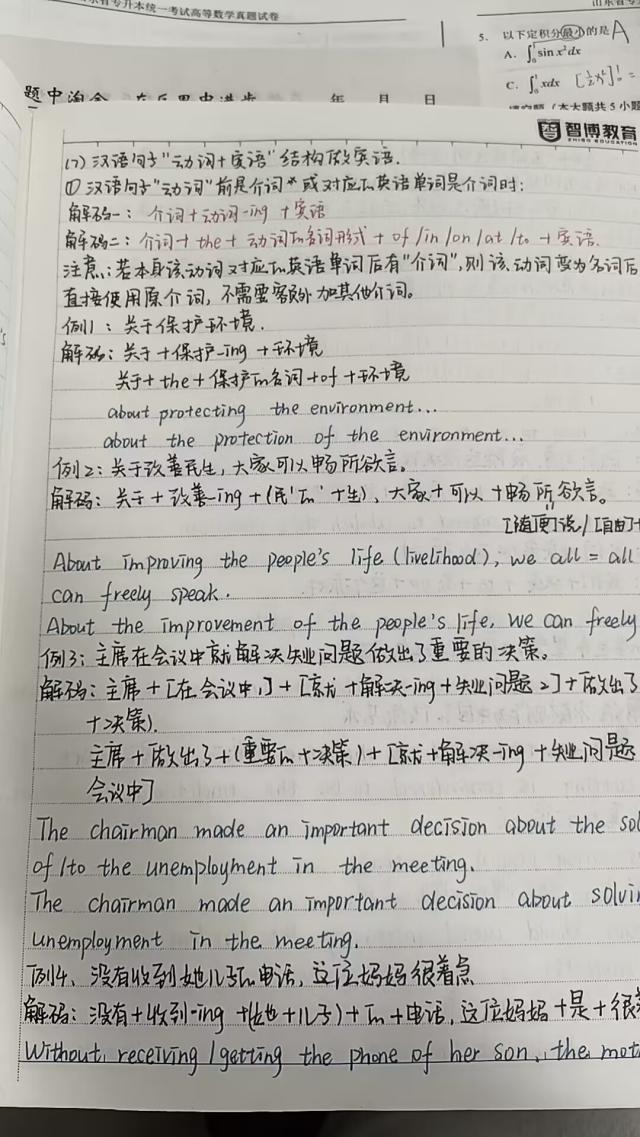 东省专升本统一考试高等数学真题试卷
5. 以下定积分最小的是 A
A. ∫₀¹ sin x² dx
C. ∫₀¹ xdx [½x²]₀¹ =
填空题（本大题共5小题
年 月 日
智博教育
ZHIBO EDUCATION
(7) 汉语句子"动词+宾语"结构做宾语.
① 汉语句子"动词"前是介词*或对应的英语单词是介词时:
解码一: 介词+动词-ing+宾语
解码二: 介词+the+动词的名词形式+of/in/on/at/to+宾语.
注意: 若本身该动词对应的英语单词后有"介词",则该动词变为名词后
直接使用原介词, 不需要额外加其他介词。
例1: 关于保护环境.
解码: 关于+保护-ing+环境
关于+the+保护的名词+of+环境
about protecting the environment...
about the protection of the environment...
例2: 关于改善民生, 大家可以畅所欲言。
解码: 关于+改善-ing+(民'的'+生), 大家+可以+畅所欲言。
[随便]说/[自由]+
About improving the people's life (livelihood), we all = all
can freely speak.
About the improvement of the people's life, we can freely
例3: 主席在会议中就解决失业问题做出了重要的决策。
解码: 主席+[在会议中1]+[就+解决-ing+失业问题2]+做出了
+决策).
主席+做出了+(重要的+决策)+[就+解决-ing+失业问题
会议中]
The chairman made an important decision about the sol
of/to the unemployment in the meeting.
The chairman made an important decision about solvin
unemployment in the meeting.
例4、没有收到她儿子的电话, 这位妈妈很着急
解码: 没有+收到-ing+(她+儿子)+的+电话, 这位妈妈+是+很着
Without receiving/getting the phone of her son, the mot